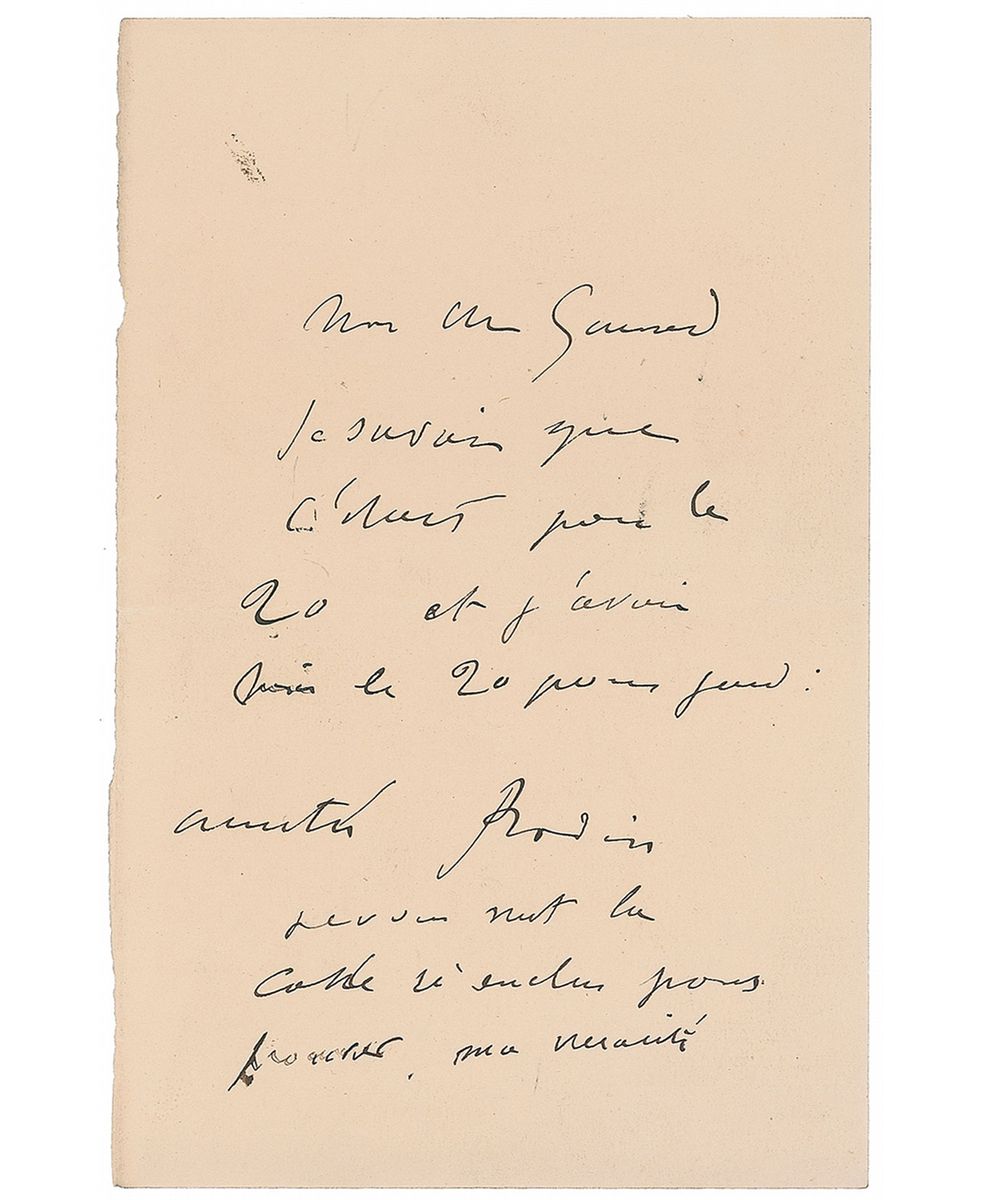 Mon cher
Je savais que
c'était pour le
20 et j'avais
pris le 20 pour jeudi
amitiés Rodin
je vous met la
carte ci enclus pour
prouver ma